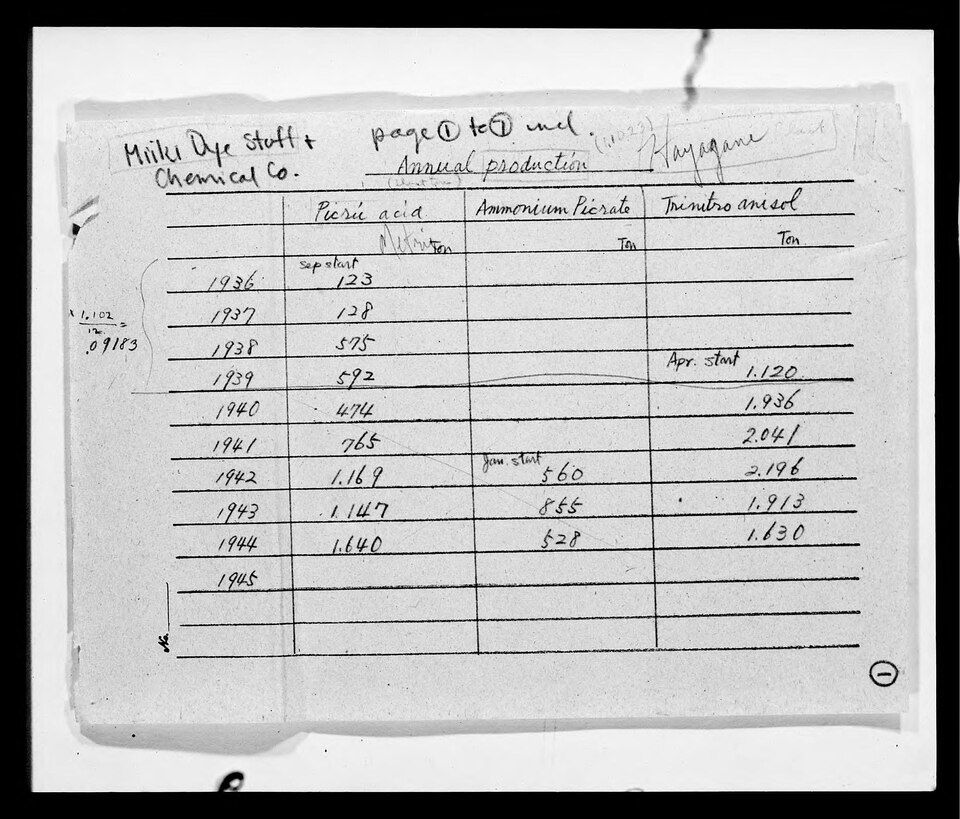 Miiki Dye Stuff +
Chemical Co.
page ① to ⑦ incl.
(1.1023)
Hayagane
Annual production
Picric acid Ammonium Picrate Trinitro anisol
Metric Ton Ton Ton
1936 Sep start 123
1937 128
1938 575
1939 592 Apr. start 1.120
1940 474 1.936
1941 765 2.041
1942 1.169 Jan. start 560 2.196
1943 1.147 855 1.913
1944 1.640 528 1.630
1945
1.102
12 =
.09183
No.
①